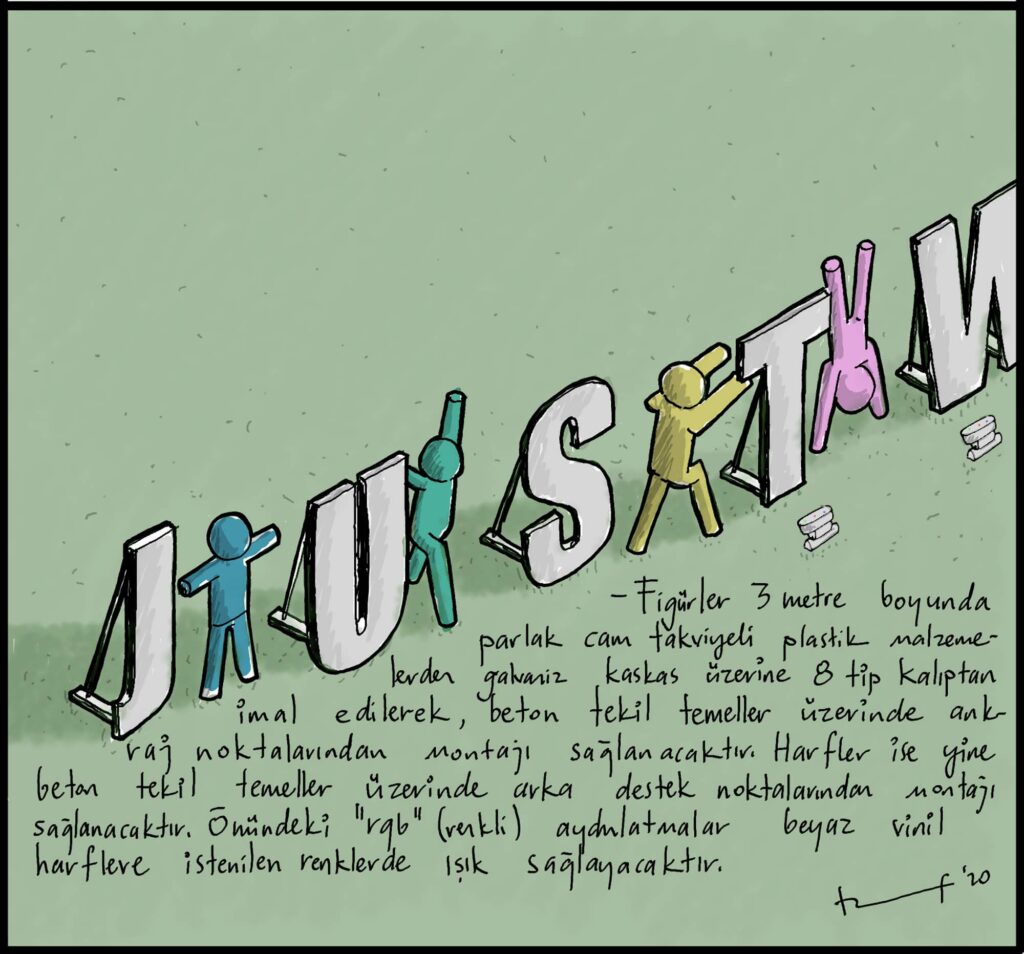 JUST W
- Figürler 3 metre boyunda
parlak cam takviyeli plastik malzeme-
lerden galvaniz kaskas üzerine 8 tip kalıptan
imal edilerek, beton tekil temeller üzerinde ank-
raj noktalarından montajı sağlanacaktır. Harfler ise yine
beton tekil temeller üzerinde arka destek noktalarından montajı
sağlanacaktır. Önündeki "rgb" (renkli) aydınlatmalar beyaz vinil
harflere istenilen renklerde ışık sağlayacaktır.
'20